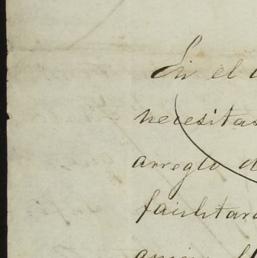 Sin el
necesitas
arreglo d
facilitar